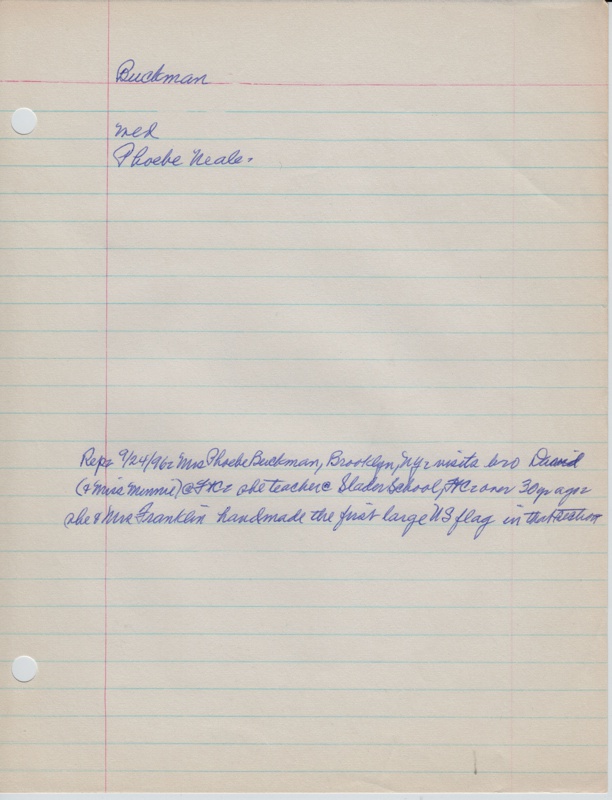 Buckman
med
Phoebe Neale.
Rep: 9/24/96: Mrs Phoebe Buckman, Brooklyn, Ny: visits bro David
(& Miss Minnie) @ FKC: she teacher @ Slader School, FKC: over 30 yr ago:
she & Mrs Franklin handmade the first large US flag in that section